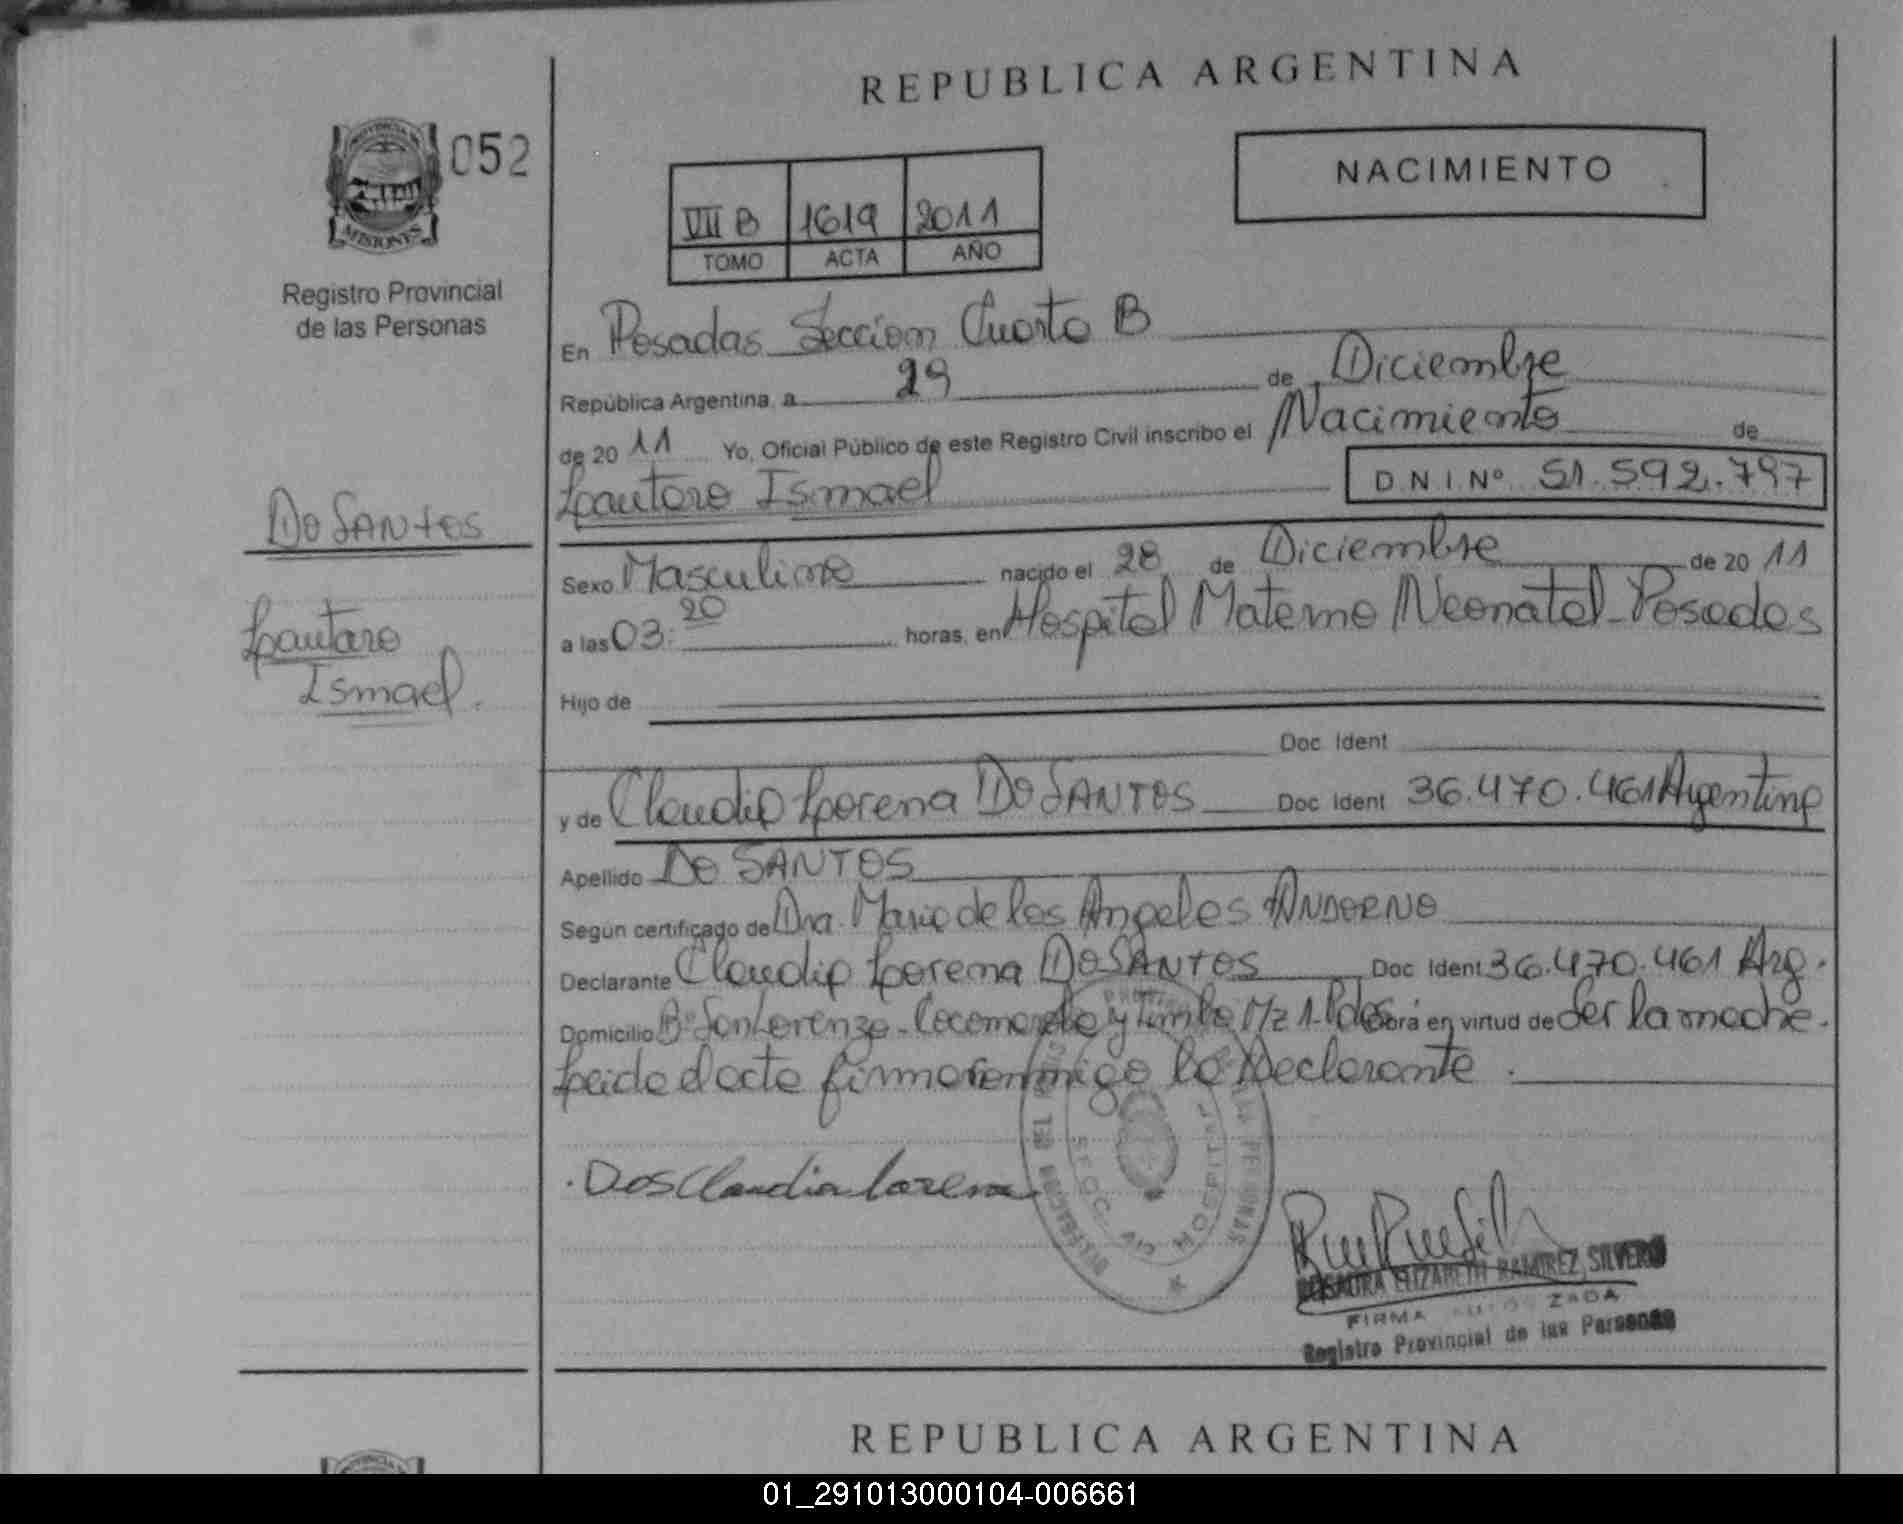 REPUBLICA ARGENTINA
PROVINCIA DE
MISIONES
052
NACIMIENTO
VII B 1619 2011
TOMO ACTA AÑO
Registro Provincial
de las Personas
En Posadas Seccion Cuarta B
República Argentina, a 29 de Diciembre
de 20 11 Yo, Oficial Público de este Registro Civil inscribo el Nacimiento de
Lautaro Ismael D.N.I. Nº 51.592.797
DO SANTOS
Lautaro
Ismael.
Sexo Masculino nacido el 28 de Diciembre de 20 11
a las 03:20 horas, en Hospital Materno Neonatal-Posadas
Hijo de
Doc. Ident
y de Claudia Lorena DO SANTOS Doc Ident 36.470.461 Argentina
Apellido DO SANTOS
Según certificado de Dra. Maria de los Angeles ANDORNO
Declarante Claudia Lorena DO SANTOS Doc Ident 36.470.461 Arg.
Domicilio Bº San Lorenzo- y Timbo Mz 1-Pdas Obra en virtud de ser la madre.
Leida el acta firma conmigo la Declarante.
Dos Claudia Lorena
ROSAURA ELIZABETH RAMIREZ SILVERO
FIRMA AUTORIZADA
Registro Provincial de las Personas
REPUBLICA ARGENTINA
01_291013000104-006661